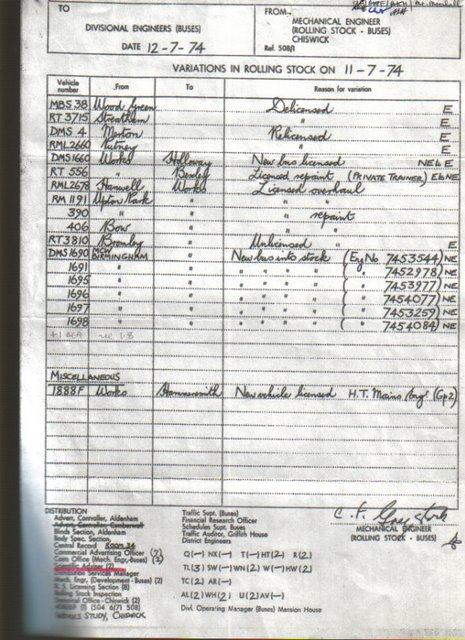 TO
DIVISIONAL ENGINEERS (BUSES)
DATE 12-7-74
FROM
MECHANICAL ENGINEER
(ROLLING STOCK - BUSES)
CHISWICK
Ref. 508/1
VARIATIONS IN ROLLING STOCK ON 11-7-74
Vehicle number From To Reason for variation
MBS 38 Wood Green Delicensed E
RT 3715 Streatham " E
DMS 4 Merton Relicensed E
RML 2660 Putney " E
DMS 1660 Works Holloway New bus licensed NE & E
RT 556 " Bexley Licensed repaint (PRIVATE TRAINER) E & NE
RML 2678 Hanwell Works Licensed overhaul
RM 1191 Upton Park " " "
390 " " " repaint
406 Bow " " "
RT 3810 Bromley " Unlicensed " E
DMS 1690 BIRMINGHAM " New bus into stock (Eng No 7453544) NE
1691 " " " " " " ( " 7452978) NE
1695 " " " " " " ( " 7453977) NE
1696 " " " " " " ( " 7454077) NE
1697 " " " " " " ( " 7453259) NE
1698 " " " " " " ( " 7454084) NE
MISCELLANEOUS
1888F Works Hammersmith New vehicle licensed H.T. Mains (Gp 2)
DISTRIBUTION
Advert. Controller, Aldenham
Advert. Controller, Camberwell
Blinds Section, Aldenham
Body Spec. Section,
Central Record ROOM 24
Commercial Advertising Officer (7)
Costs Office (Mech. Engr.-Buses) (2)
Scientific Adviser (2)
Services Manager
Mech. Engr. (Development - Buses) (2)
R. S. Licensing Section (8)
Rolling Stock Inspection
Office - Chiswick (2)
(1) (504 6/71 508)
WORKS STUDY, CHISWICK
Traffic Supt. (Buses)
Financial Research Officer
Schedules Supt. Buses
Traffic Auditor, Griffith House
District Engineers
Q (—) NX (—) T (—) HT (2) R (2)
TL (3) SW (—) WN (2) W (—) HW (2)
TC (2) AR (—)
AL (2) WH (2) U (2) AV (—)
Divl. Operating Manager (Buses) Mansion House
MECHANICAL ENGINEER
(ROLLING STOCK - BUSES)